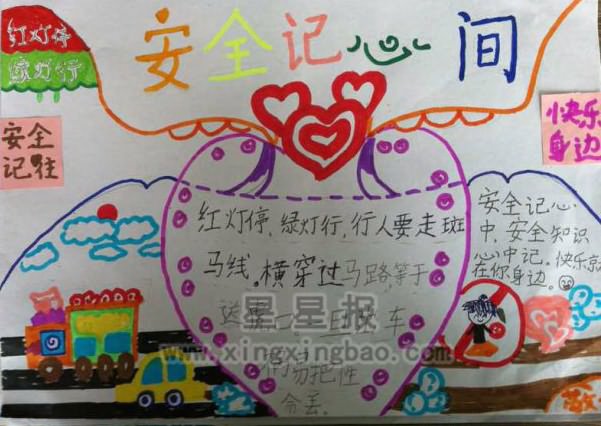 安全记心间
红灯停
绿灯行
安全
记住
快乐
身边
红灯停,绿灯行,行人要走斑
马线。横穿过马路等于
送
车
易把性
命丢.
安全记心
中,安全知识
心中记。快乐就
在你身边。
星星报
www.xingxingbao.com